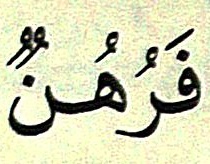 فَرُهُنٌ